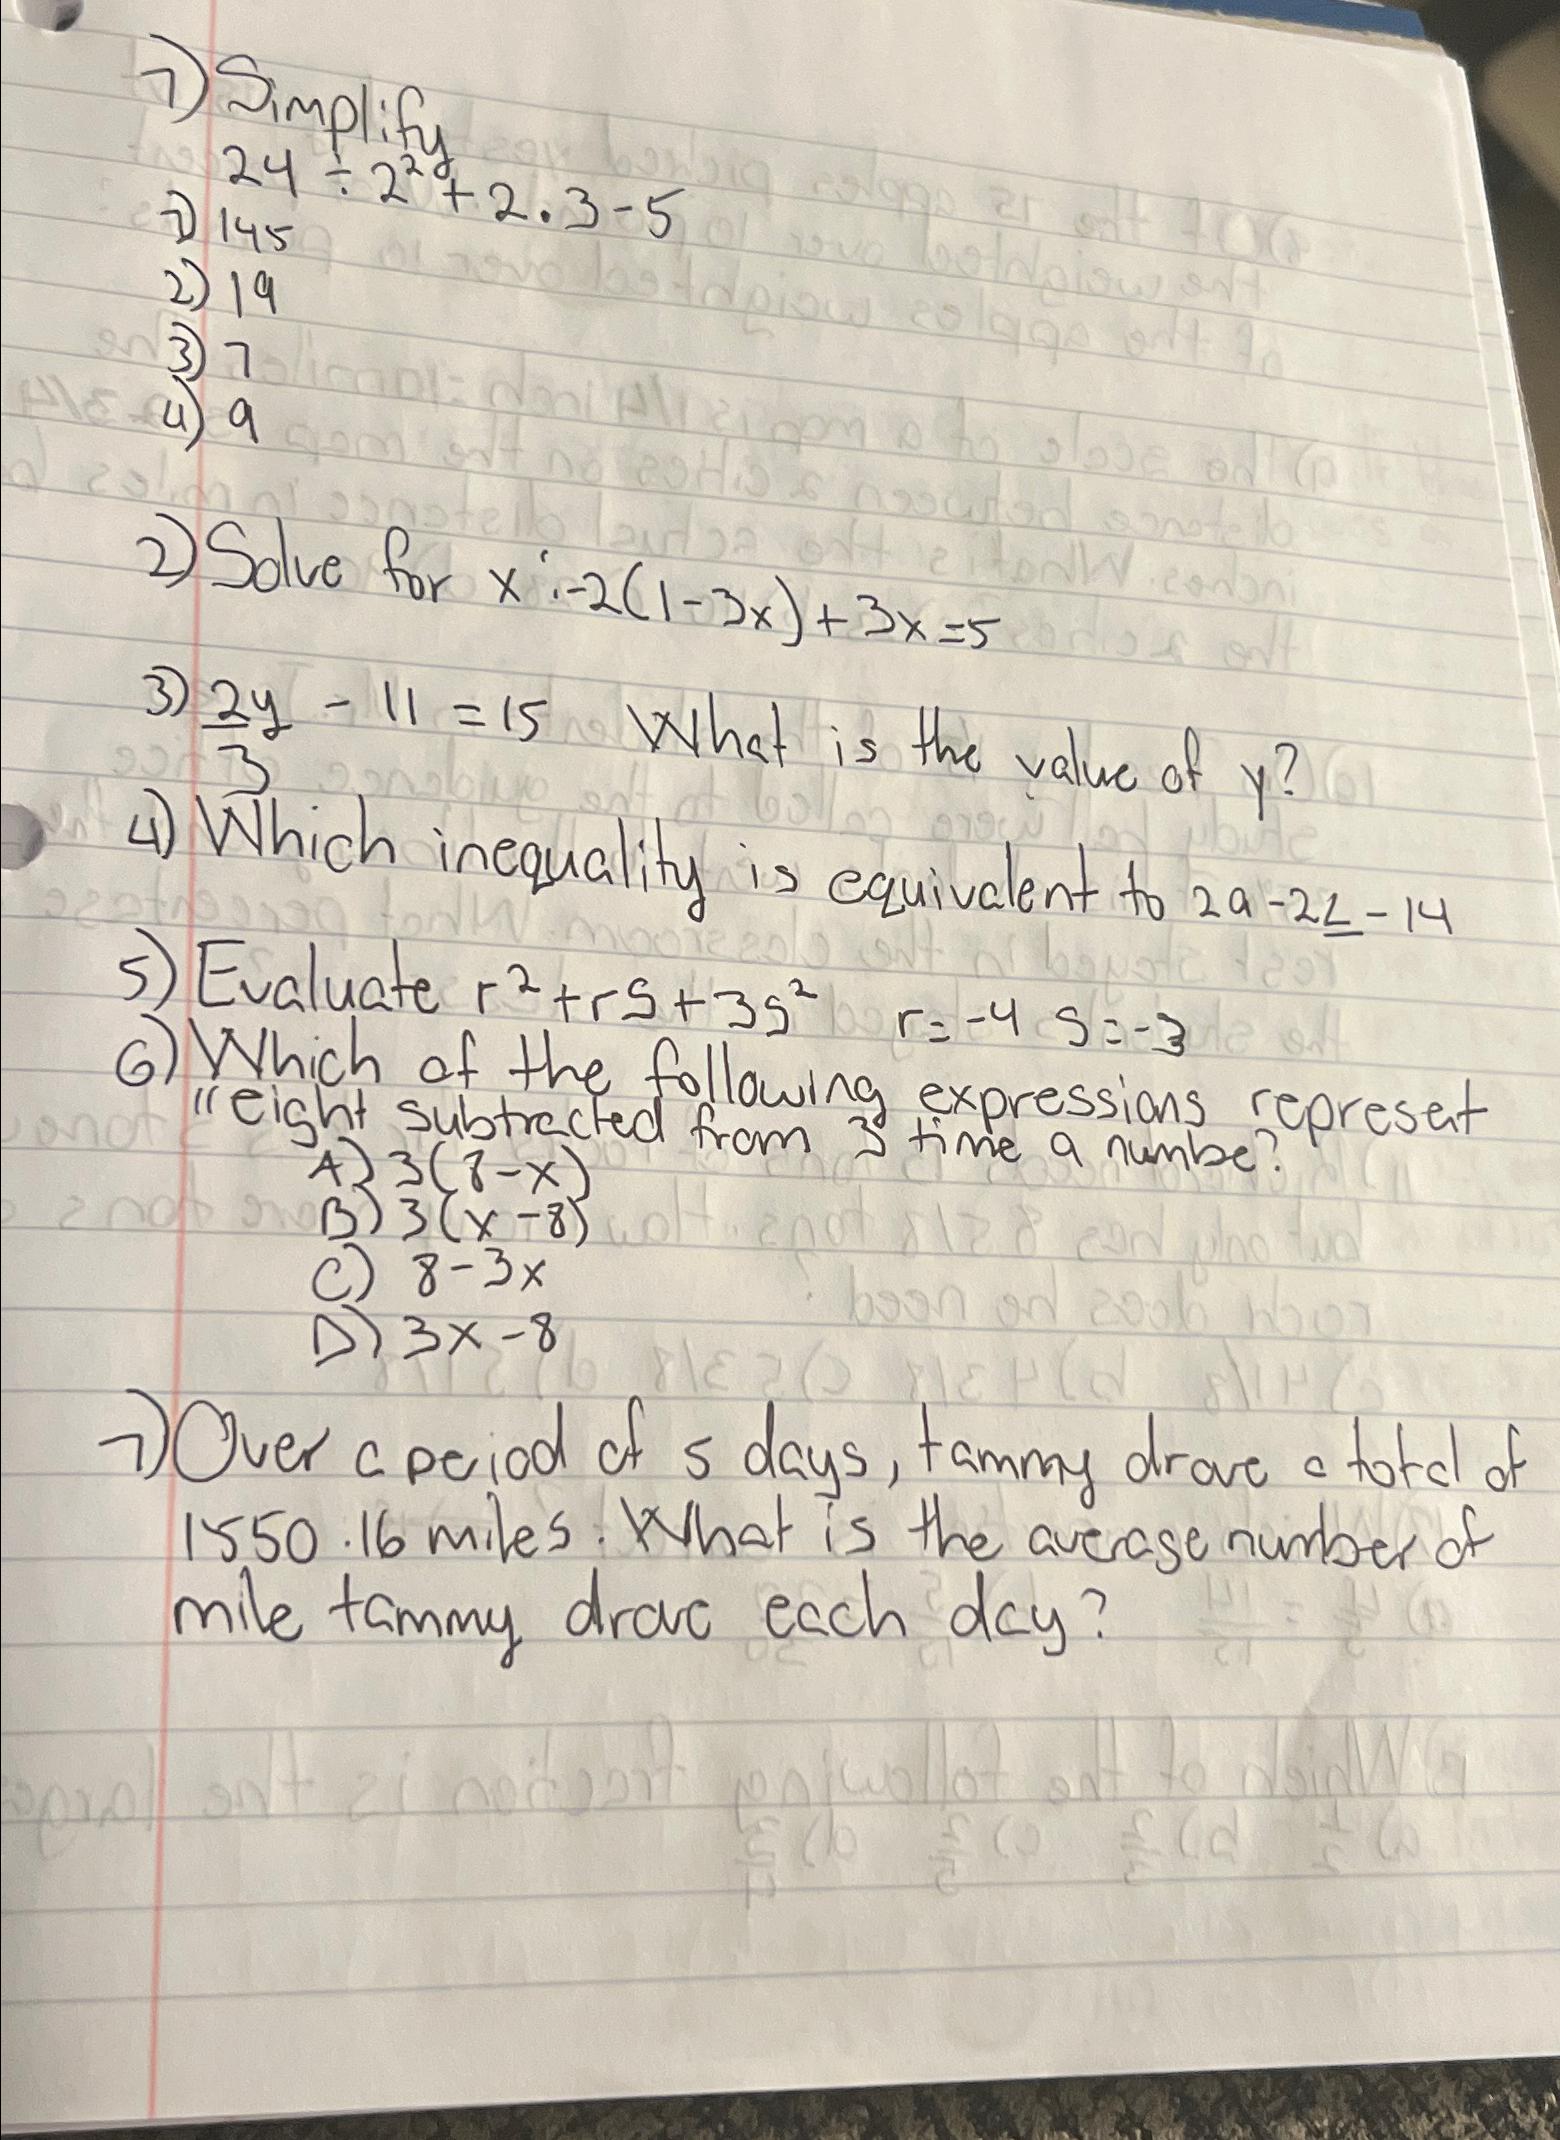 1) Simplify
24 ÷ 2² + 2 . 3 - 5
1) 145
2) 19
3) 7
4) 9
2) Solve for x : -2(1-3x) + 3x = 5
3) 2y/3 - 11 = 15 What is the value of y?
4) Which inequality is equivalent to 2a - 2 ≤ - 14
5) Evaluate r² + rs + 3s² r = -4 s = -3
6) Which of the following expressions represent
"eight subtracted from 3 time a numbe?
A) 3(8-x)
B) 3(x-8)
C) 8-3x
D) 3x-8
7) Over a peiod of 5 days, tammy drove a total of
1550.16 miles. What is the average number of
mile tammy drove each day?